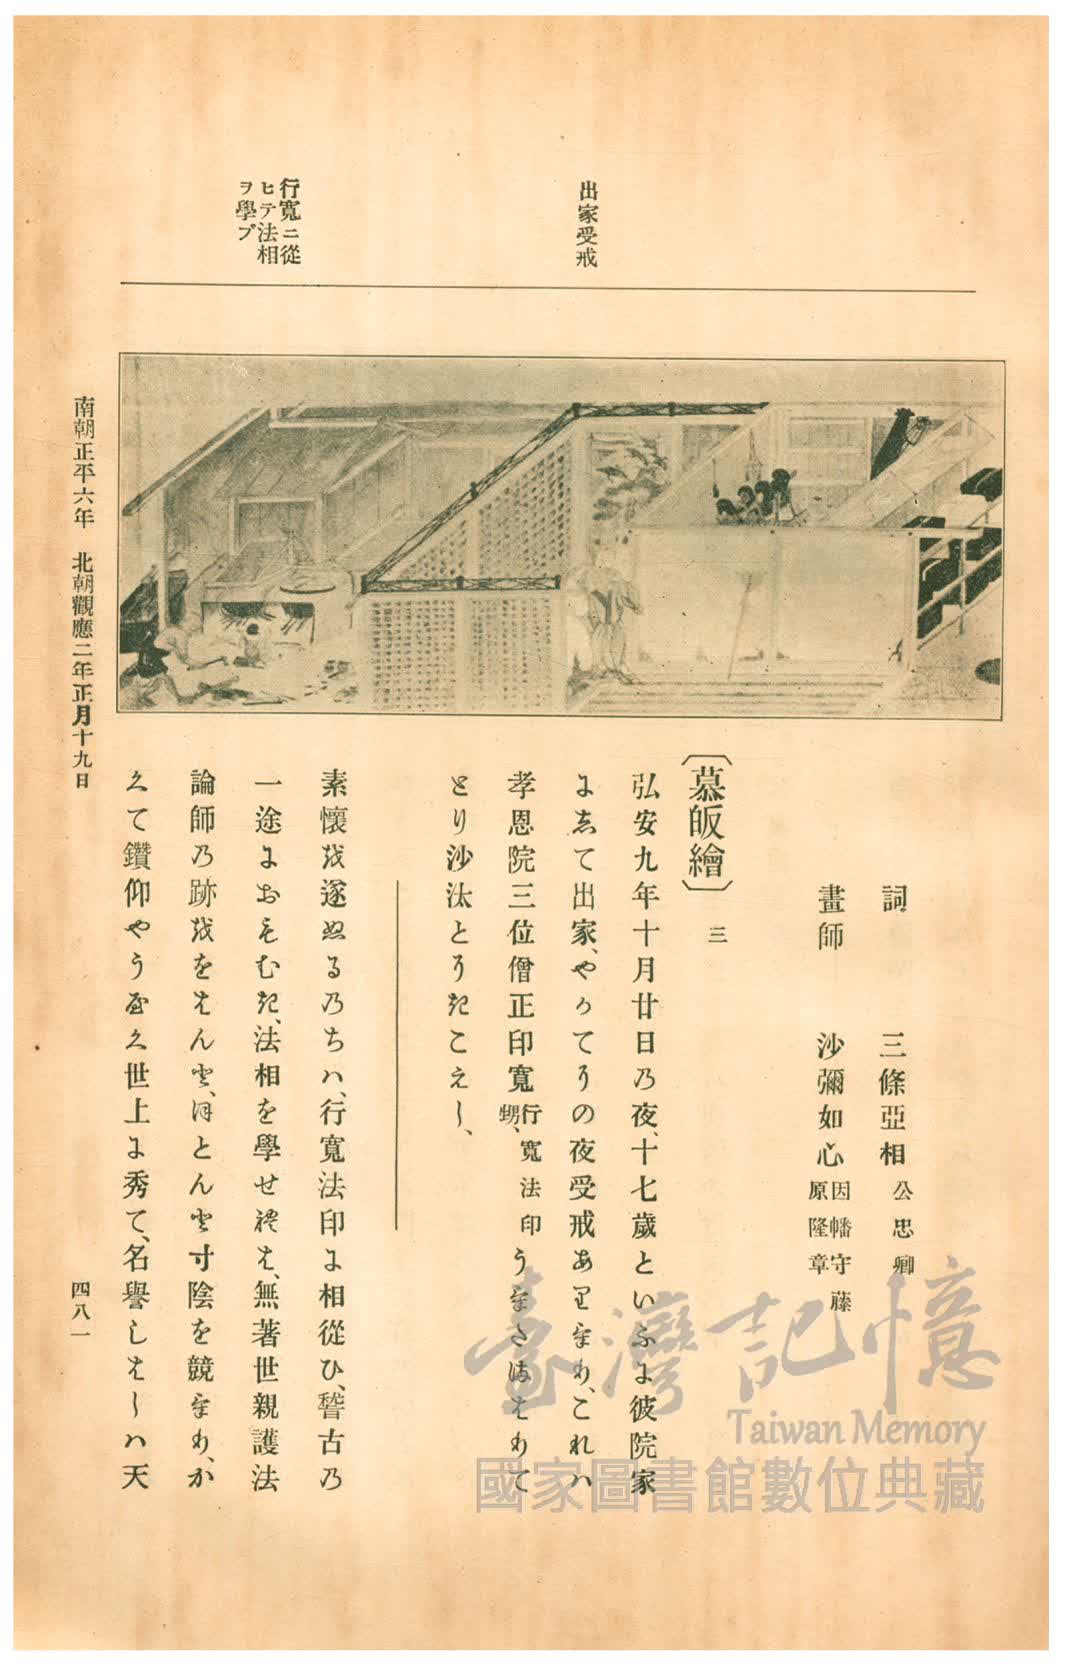 出家受戒
行寬ニ從
ヒテ法相
ヲ學ブ
詞　三條亞相公忠卿
畫師　沙彌如心因幡守藤原隆章
〔慕皈繪〕三
弘安九年十月廿日乃夜、十七歲といふに彼院家
にして出家、やかてその夜受戒ありけり、これハ
孝恩院三位僧正印寬行寬法印甥、うけたまはりて
とり沙汰とそきこえし、
素懷を遂ぬる乃ちハ、行寬法印に相從ひ、稽古乃
一途におもむき、法相を學せ禮は、無著世親護法
論師乃跡ををはんと、ほとんと寸陰を競けり、か
くて鑽仰やうやく世上に秀て、名譽しはしハ天
南朝正平六年　北朝觀應二年正月十九日
四八一
臺灣記憶
Taiwan Memory
國家圖書館數位典藏